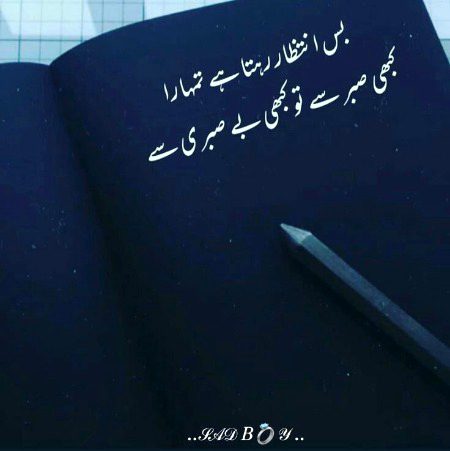 بس انتظار رہتا ہے تمہارا
کبھی صبر سے تو کبھی بے صبری سے
..SAD B💍Y..